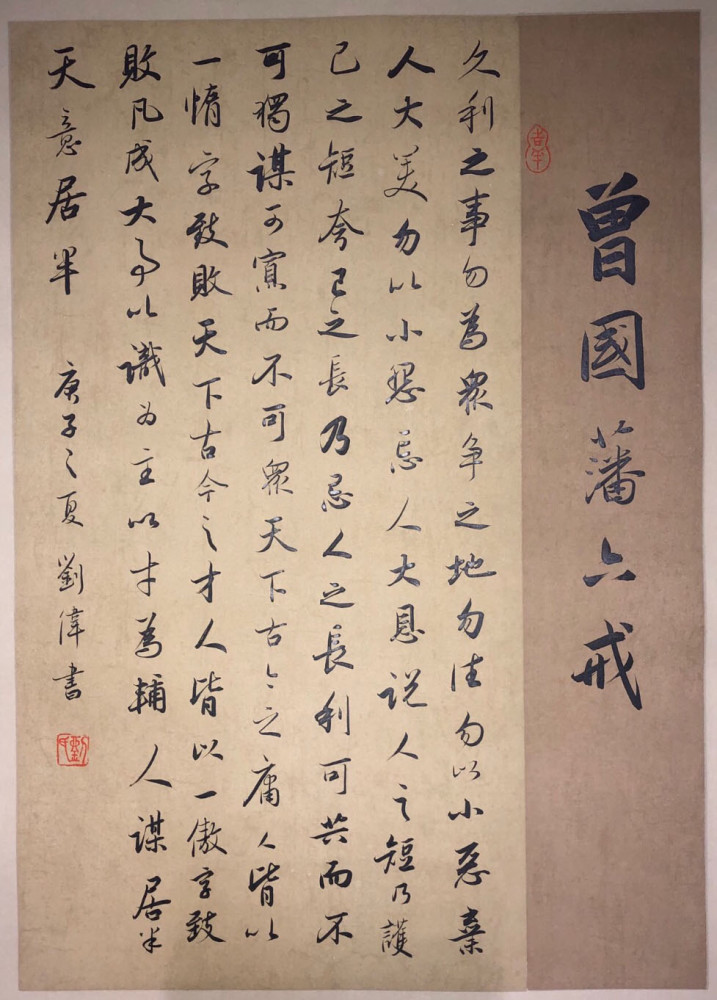 曾國藩六戒
吉羊
久利之事勿為衆争之地勿往勿以小惡棄
人大美勿以小怨忘人大恩说人之短乃護
己之短夸己之長乃忌人之長利可共而不
可獨謀可寡而不可衆天下古今之庸人皆以
一惰字致敗天下古今之才人皆以一傲字致
敗凡成大事以識为主以才為輔人謀居半
天意居半 庚子之夏 劉偉書
劉氏